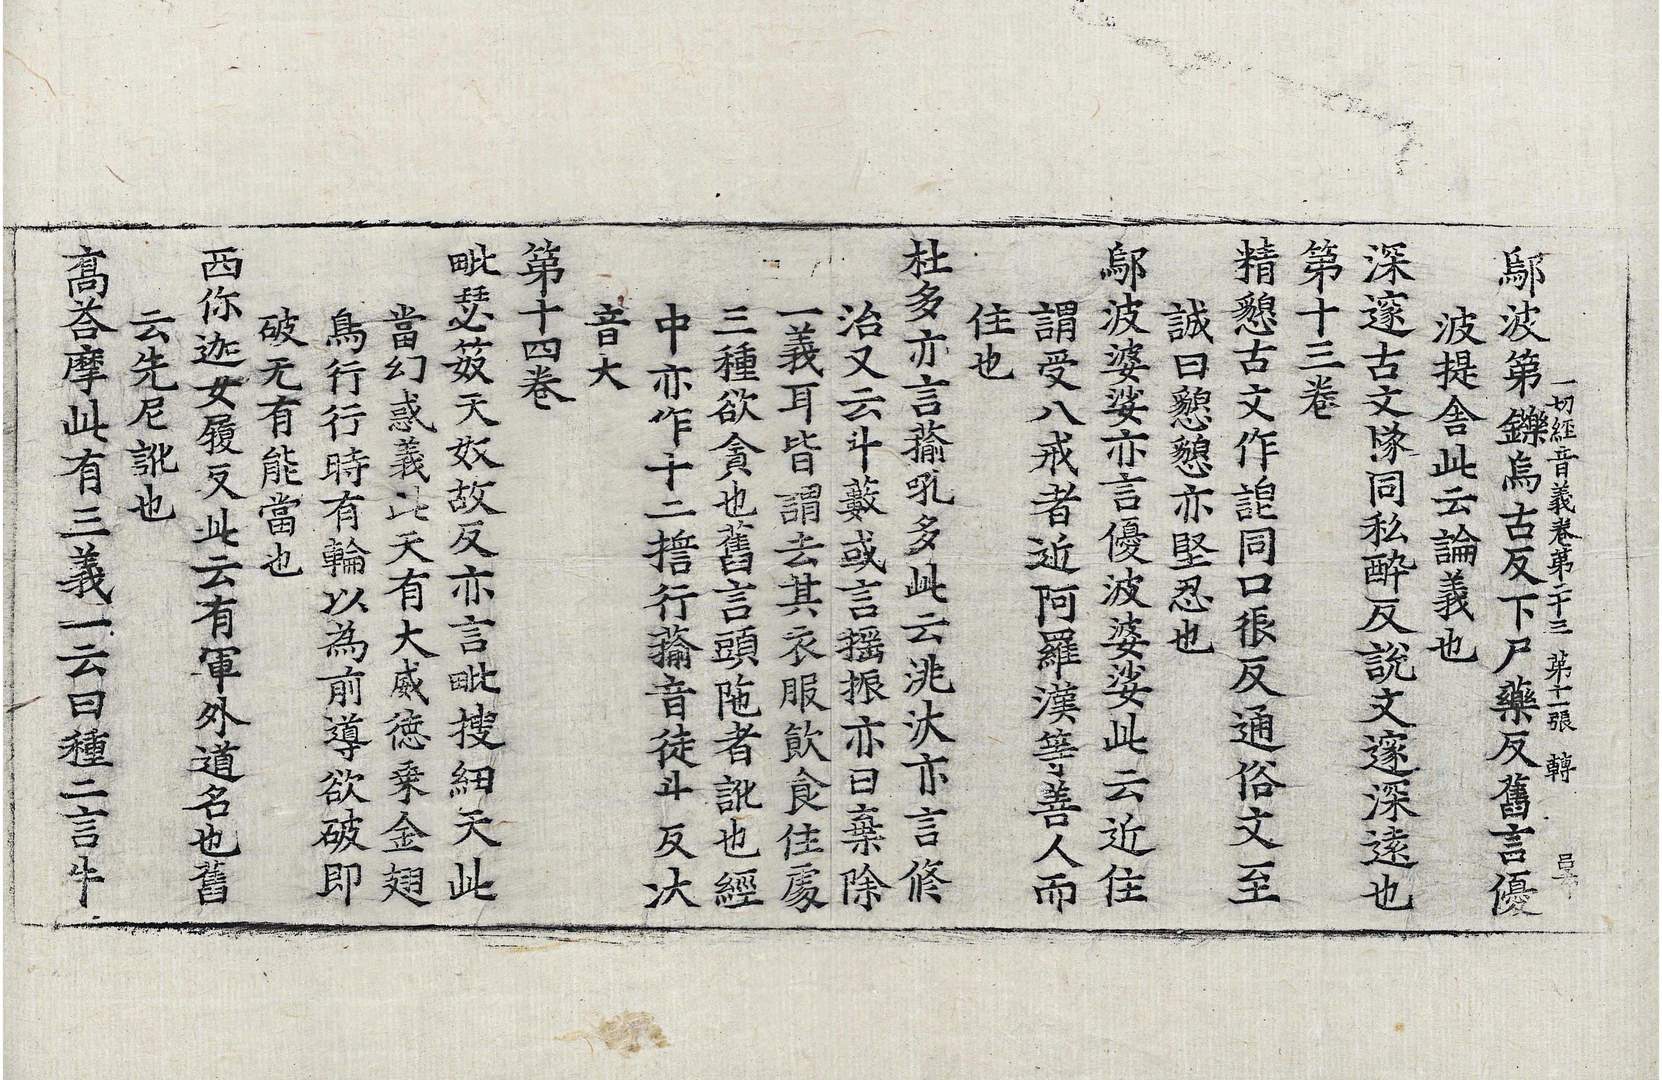 一切經音義卷第二十三 第十一張 轉
鄔波第鑠烏古反下尸藥反舊言優
波提舍此云論義也
深邃古文㒸同私醉反說文邃深遠也
第十三卷
精懇古文作詪同口很反通俗文至
誠曰懇懇亦堅忍也
鄔波婆娑亦言優波婆娑此云近住
謂受八戒者近阿羅漢等善人而
住也
杜多亦言蕍吼多此云洮汏亦言修
治又云斗藪或言搖振亦曰棄除
一義耳皆謂去其衣服飲食住處
三種欲貪也舊言頭陁者訛也經
中亦作十二擔行蕍音徒斗反汏
音大
第十四卷
毗瑟笯天奴故反亦言毗搜紐天此
當幻惑義此天有大威德乘金翅
鳥行行時有輪以為前導欲破即
破无有能當也
西你迦女履反此云有軍外道名也舊
云先尼訛也
髙荅摩此有三義一云日種二言牛